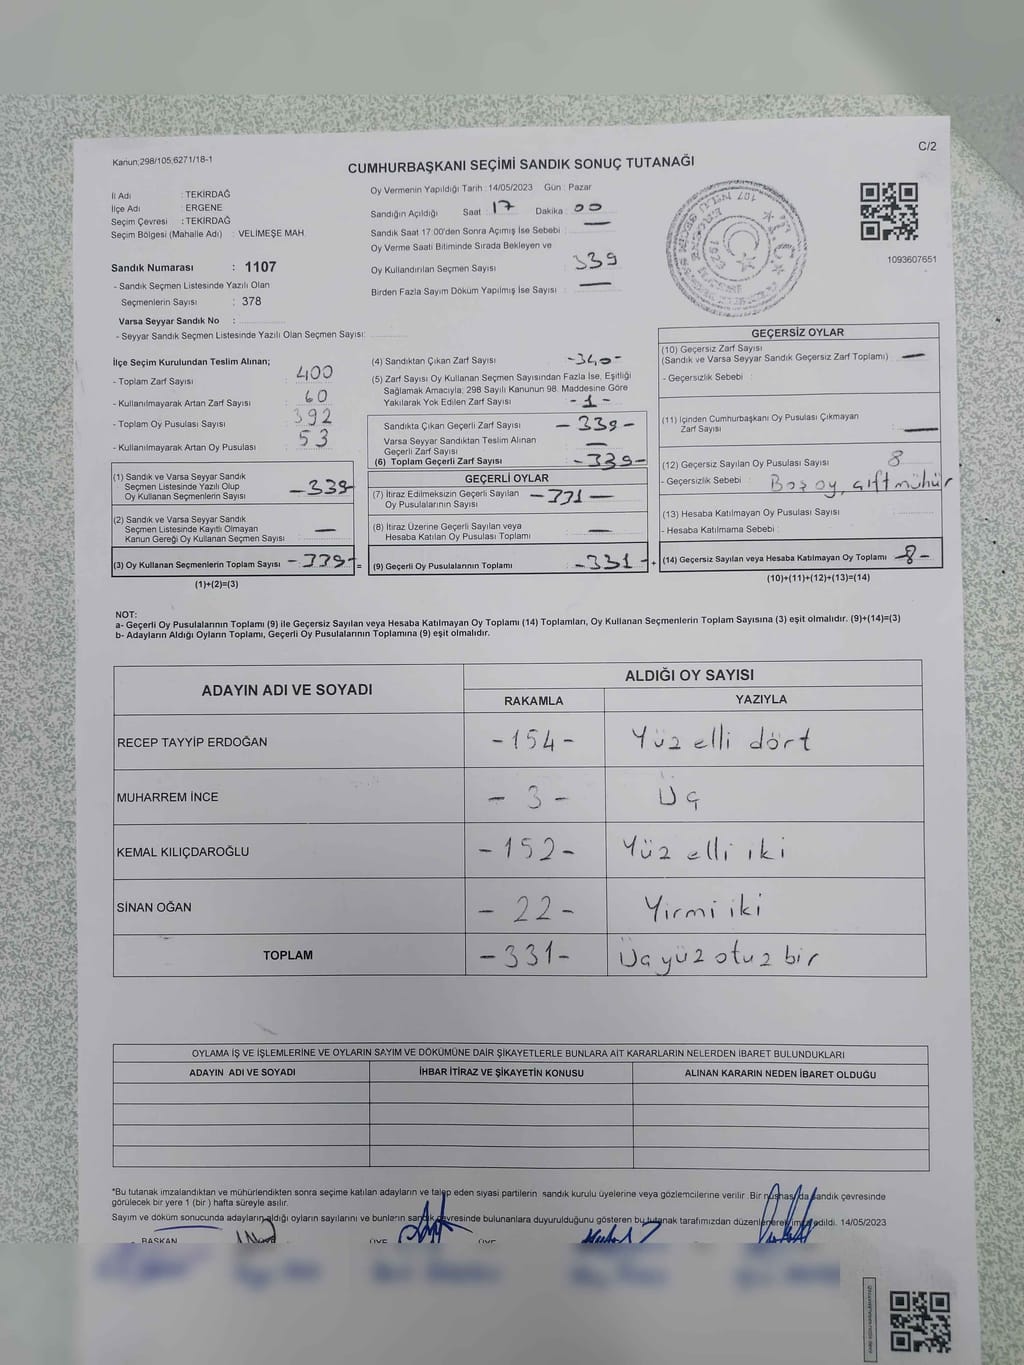 Kanun;298/105;6271/18-1
C/2
CUMHURBAŞKANI SEÇİMİ SANDIK SONUÇ TUTANAĞI
İl Adı : TEKİRDAĞ
İlçe Adı : ERGENE
Seçim Çevresi : TEKİRDAĞ
Seçim Bölgesi (Mahalle Adı) : VELİMEŞE MAH.
Sandık Numarası : 1107
- Sandık Seçmen Listesinde Yazılı Olan
Seçmenlerin Sayısı : 378
Varsa Seyyar Sandık No :
- Seyyar Sandık Seçmen Listesinde Yazılı Olan Seçmen Sayısı:
Oy Vermenin Yapıldığı Tarih : 14/05/2023 Gün : Pazar
Sandığın Açıldığı Saat : 17 Dakika : 00
Sandık Saat 17.00'den Sonra Açımış İse Sebebi : —
Oy Verme Saati Bitiminde Sırada Bekleyen ve
Oy Kullandırılan Seçmen Sayısı : 339
Birden Fazla Sayım Döküm Yapılmış İse Sayısı : —
1093607651
İlçe Seçim Kurulundan Teslim Alınan;
- Toplam Zarf Sayısı : 400
- Kullanılmayarak Artan Zarf Sayısı : 60
- Toplam Oy Pusulası Sayısı : 392
- Kullanılmayarak Artan Oy Pusulası : 53
(1) Sandık ve Varsa Seyyar Sandık
Seçmen Listesinde Yazılı Olup
Oy Kullanan Seçmenlerin Sayısı -339
(2) Sandık ve Varsa Seyyar Sandık
Seçmen Listesinde Kayıtlı Olmayan
Kanun Gereği Oy Kullanan Seçmen Sayısı : —
(3) Oy Kullanan Seçmenlerin Toplam Sayısı -339- =
(1)+(2)=(3)
(4) Sandıktan Çıkan Zarf Sayısı -340-
(5) Zarf Sayısı Oy Kullanan Seçmen Sayısından Fazla İse, Eşitliği
Sağlamak Amacıyla; 298 Sayılı Kanunun 98. Maddesine Göre
Yakılarak Yok Edilen Zarf Sayısı -1-
Sandıkta Çıkan Geçerli Zarf Sayısı -339-
Varsa Seyyar Sandıktan Teslim Alınan
Geçerli Zarf Sayısı —
(6) Toplam Geçerli Zarf Sayısı -339-
GEÇERLİ OYLAR
(7) İtiraz Edilmeksizin Geçerli Sayılan
Oy Pusulalarının Sayısı -331-
(8) İtiraz Üzerine Geçerli Sayılan veya
Hesaba Katılan Oy Pusulası Toplamı —
(9) Geçerli Oy Pusulalarının Toplamı -331- +
GEÇERSİZ OYLAR
(10) Geçersiz Zarf Sayısı
(Sandık ve Varsa Seyyar Sandık Geçersiz Zarf Toplamı) : —
- Geçersizlik Sebebi :
(11) İçinden Cumhurbaşkanı Oy Pusulası Çıkmayan
Zarf Sayısı —
(12) Geçersiz Sayılan Oy Pusulası Sayısı 8
- Geçersizlik Sebebi : Boş oy, çift mühür
(13) Hesaba Katılmayan Oy Pusulası Sayısı :
- Hesaba Katılmama Sebebi :
(14) Geçersiz Sayılan veya Hesaba Katılmayan Oy Toplamı -8-
(10)+(11)+(12)+(13)=(14)
NOT:
a- Geçerli Oy Pusulalarının Toplamı (9) ile Geçersiz Sayılan veya Hesaba Katılmayan Oy Toplamı (14) Toplamları, Oy Kullanan Seçmenlerin Toplam Sayısına (3) eşit olmalıdır. (9)+(14)=(3)
b- Adayların Aldığı Oyların Toplamı, Geçerli Oy Pusulalarının Toplamına (9) eşit olmalıdır.
ADAYIN ADI VE SOYADI ALDIĞI OY SAYISI
RAKAMLA YAZIYLA
RECEP TAYYİP ERDOĞAN -154- Yüz elli dört
MUHARREM İNCE - 3 - Üç
KEMAL KILIÇDAROĞLU -152- Yüz elli iki
SİNAN OĞAN - 22 - Yirmi iki
TOPLAM -331- Üç yüz otuz bir
OYLAMA İŞ VE İŞLEMLERİNE VE OYLARIN SAYIM VE DÖKÜMÜNE DAİR ŞİKAYETLERLE BUNLARA AİT KARARLARIN NELERDEN İBARET BULUNDUKLARI
ADAYIN ADI VE SOYADI İHBAR İTİRAZ VE ŞİKAYETİN KONUSU ALINAN KARARIN NEDEN İBARET OLDUĞU
*Bu tutanak imzalandıktan ve mühürlendikten sonra seçime katılan adayların ve talep eden siyasi partilerin sandık kurulu üyelerine veya gözlemcilerine verilir. Bir nüshası da sandık çevresinde
görülecek bir yere 1 (bir ) hafta süreyle asılır.
Sayım ve döküm sonucunda adayların aldığı oyların sayılarını ve bunların sandık çevresinde bulunanlara duyurulduğunu gösteren bu tutanak tarafımızdan düzenlenerek imza edildi. 14/05/2023
BAŞKAN ÜYE ÜYE